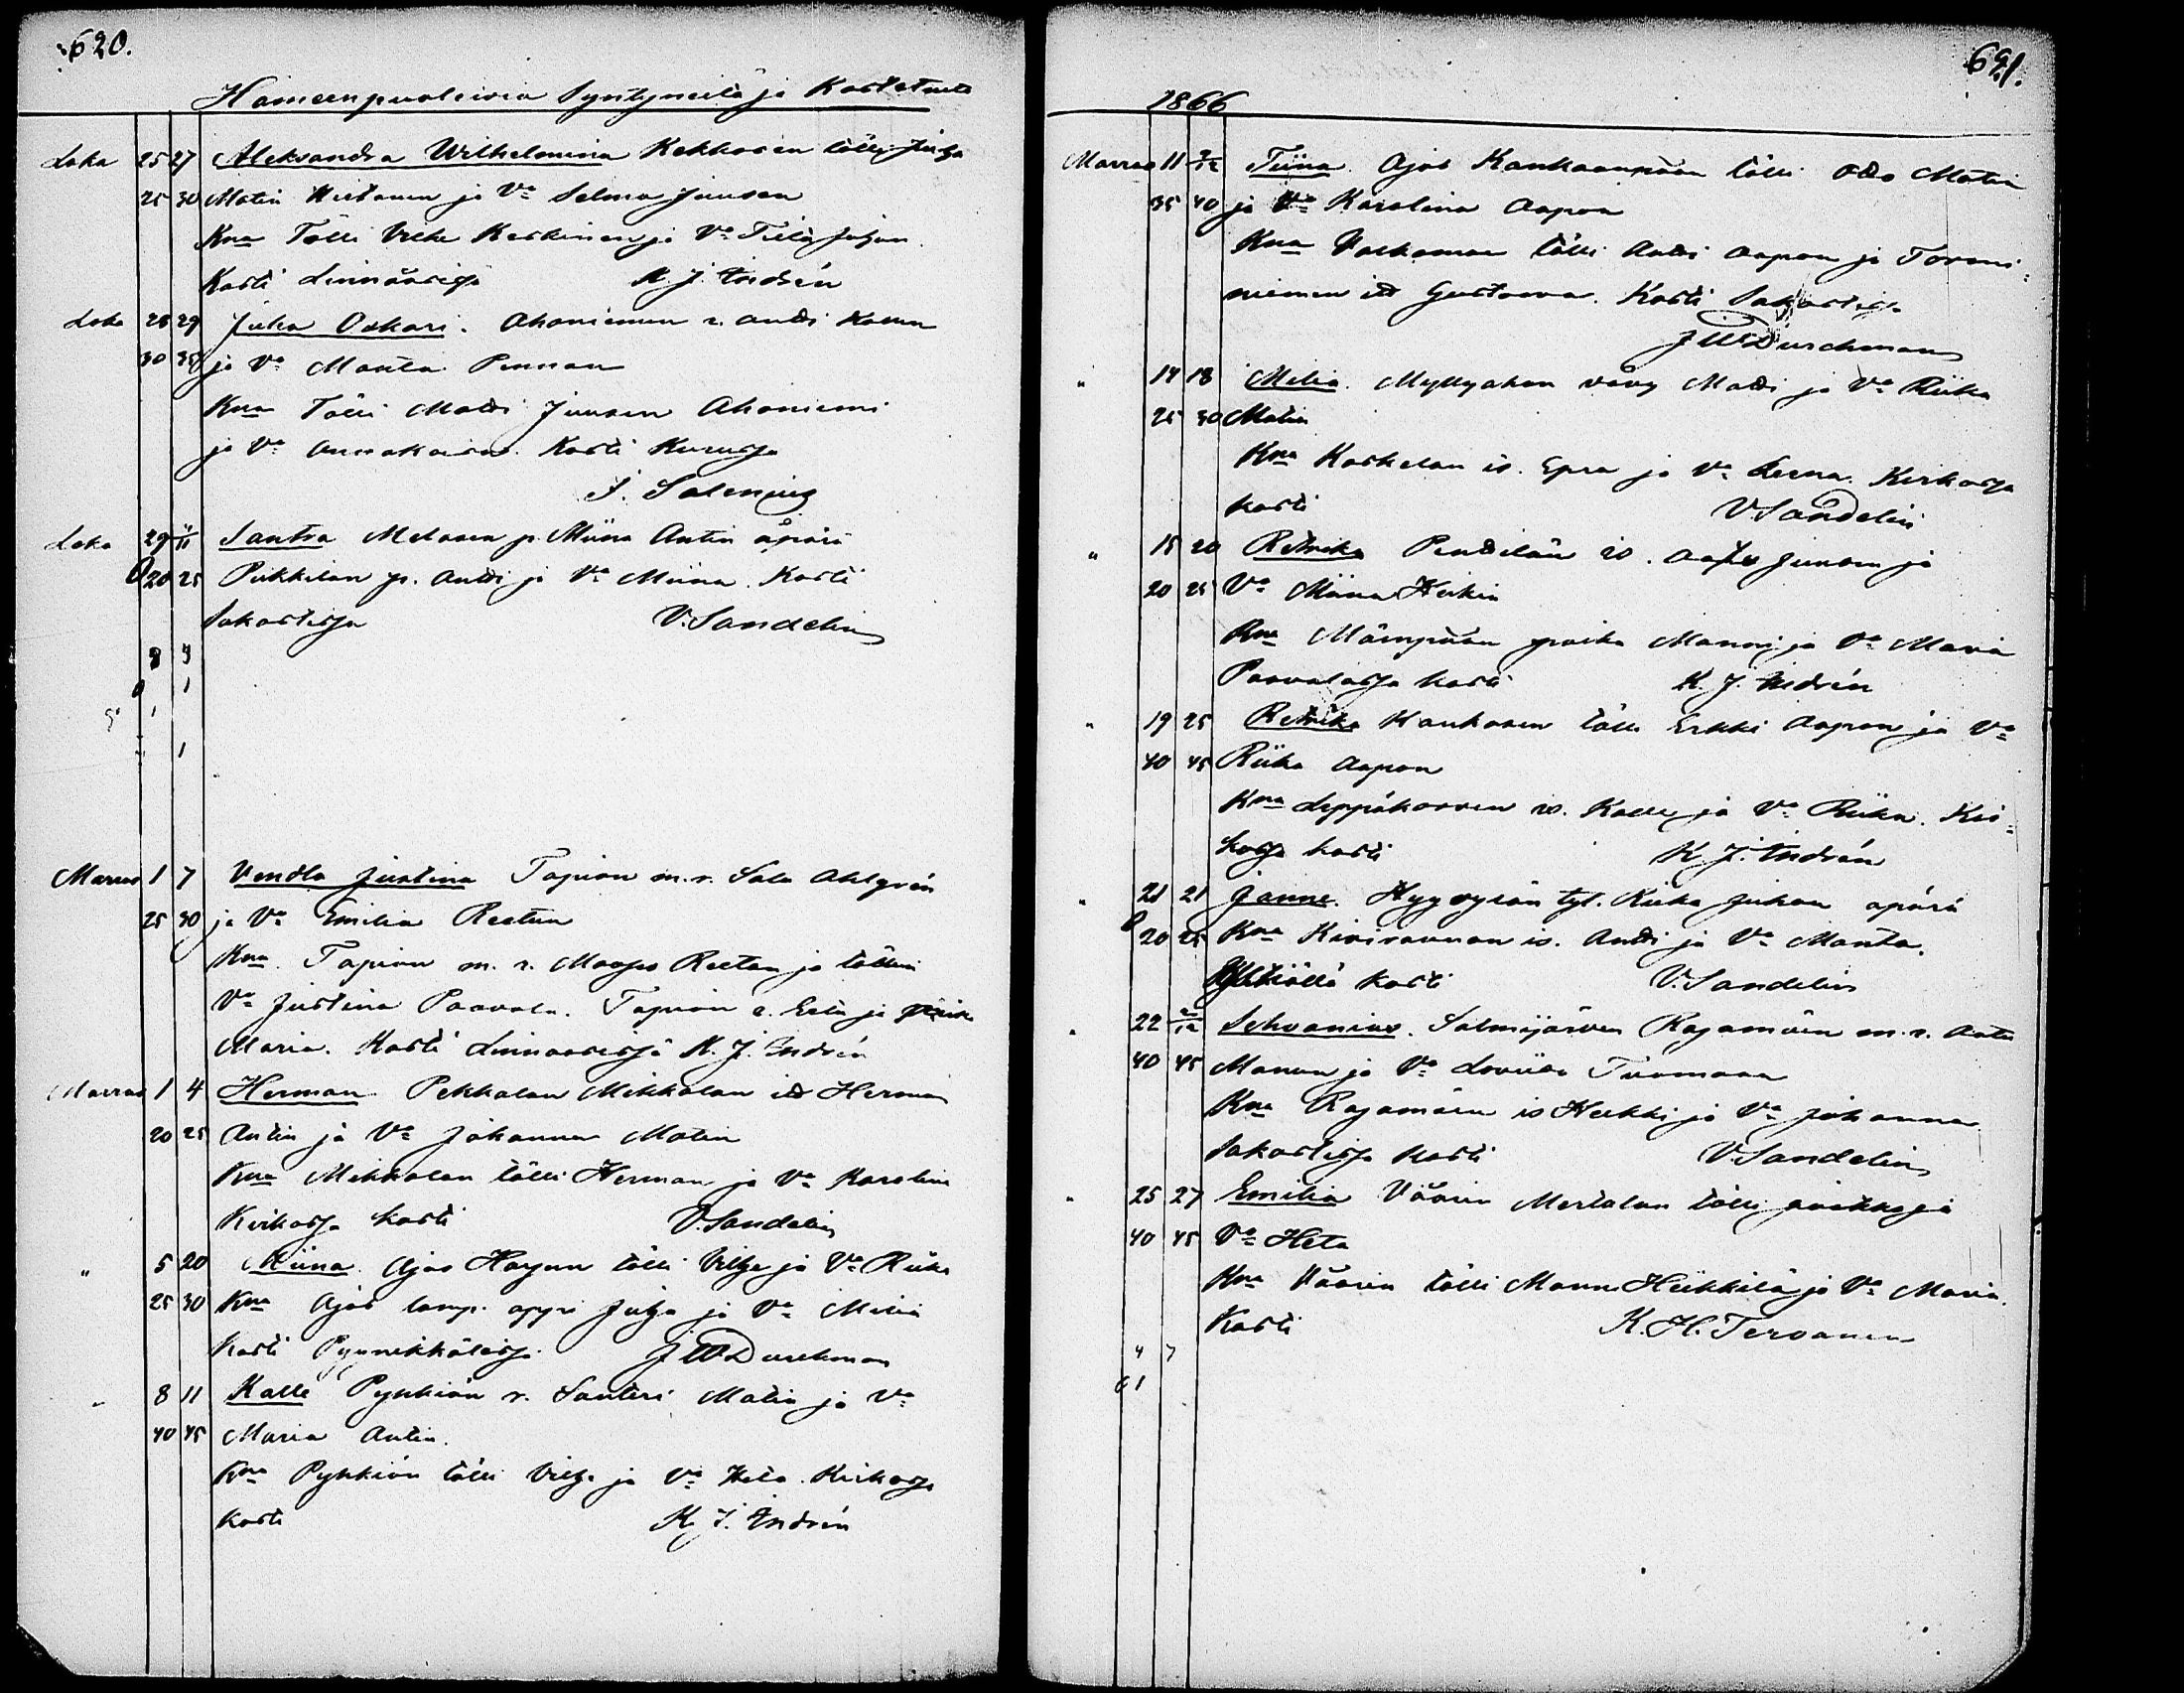 620.
Hämeenpuoleisia Syntyneitä ja Kastetuita
Loka 25 27 Aleksandra Wilhelmina Kekkosen tölli Juha
25 30 Matin ja Va Selma Juusen
Kna Tölli Ville Keskinen ja Va Tiila Juhan
Kasti Linnäärisä K. J. Indrén
Loka 28 29 Juha Oskari. Ahoniemen r. Antti
30 35 ja Va Manta Pennan
Kna Tölli Matti Juusen Ahoniemi
ja Va Annakaisa. Kasti Kurusa
J. Salenius
Loka 29 1/11 Santra Melasen p. Miina Antin äpärä
20 25 Pukkilan p. Antti ja Va Miina. Kasti
Sakastissa V. Sandelin
8 9
1
1
1
Marras 1 7 Vendla Justina Tapion m. r. Salu Ahlgrén
25 30 ja Va Emilia Reetun
Kna. Tapion m. r. Reetan ja töllin
Va Justina Paavola. Tapion r. Eelu ja
Maria. Kasti Linnaarissä K. J. Indrén
Marras 1 4 Herman Pekkalan Mikkolan itt Herman
20 25 Antin ja Va Johanna Matin
Kna Mikkolan tölli Herman ja Va Karolina
Kirkosa kasti V. Sandelin
" 5 20 Miina. Ajos Harjun tölli Ville ja Va Riika
25 30 Kna Ajos lamp. appi Juha ja Va Milia
Kasti Pynnikkälässä J W Durchman
" 8 11 Kalle Pyhkiön r. Santeri Matin ja Va
40 45 Maria Antin.
Kna Pyhkiön tölli Ville ja Va Heta. Kirkosa
kasti K. J. Indrén
621.
1866
Marras 11 2/12 Tiina. Ajos Kankaanpään tölli Otto Matin
35 40 ja Va Karolina Aapon
Kna Valkaman tölli Antti Aapon ja Torani-
niemen itt Gustaava. Kasti Sakastissa
J W Durchman
" 14 18 Milia. Myllyahon vävy Matti ja Va Riika
25 30 Matin
Kna Koskelan is. Epra ja Va Leena. Kirkosa
kasti V. Sandelin
" 15 20 Retrika Penttilän is. Juusen ja
20 25 Va Miina Heikin
Kna Mäenpään poika Manni ja Va Maria
Paavolassa kasti K. J. Indrén
" 19 25 Retrika Kaukosen tölli Erkki Aapon ja Va
40 45 Riika Aapon
Kna Leppäkorven is. Kalle ja Va Riika. Kir-
kosa kasti K. J. Indrén
" 21 21 Janne. Hyyrysän tyt. Riika Juhan äpärä
20 25 Kna Kivirannan is. Antti ja Va Manta.
kasti V. Sandelin
" 22 /12 Sehvanius. Salmijärven Rajamäen m. r. Antu
40 45 Manun ja Va Loviisa Tuomaan
Kna Rajamäen is Heikki ja Va Johanna
Sakastissa kasti V. Sandelin
" 25 27 Emilia Väärin Mertalan tölli ja
40 45 Va Heta
Kna Väärin tölli Mannu Heikkilä ja Va Maria.
Kasti K. H. Tervanen
4 7
1